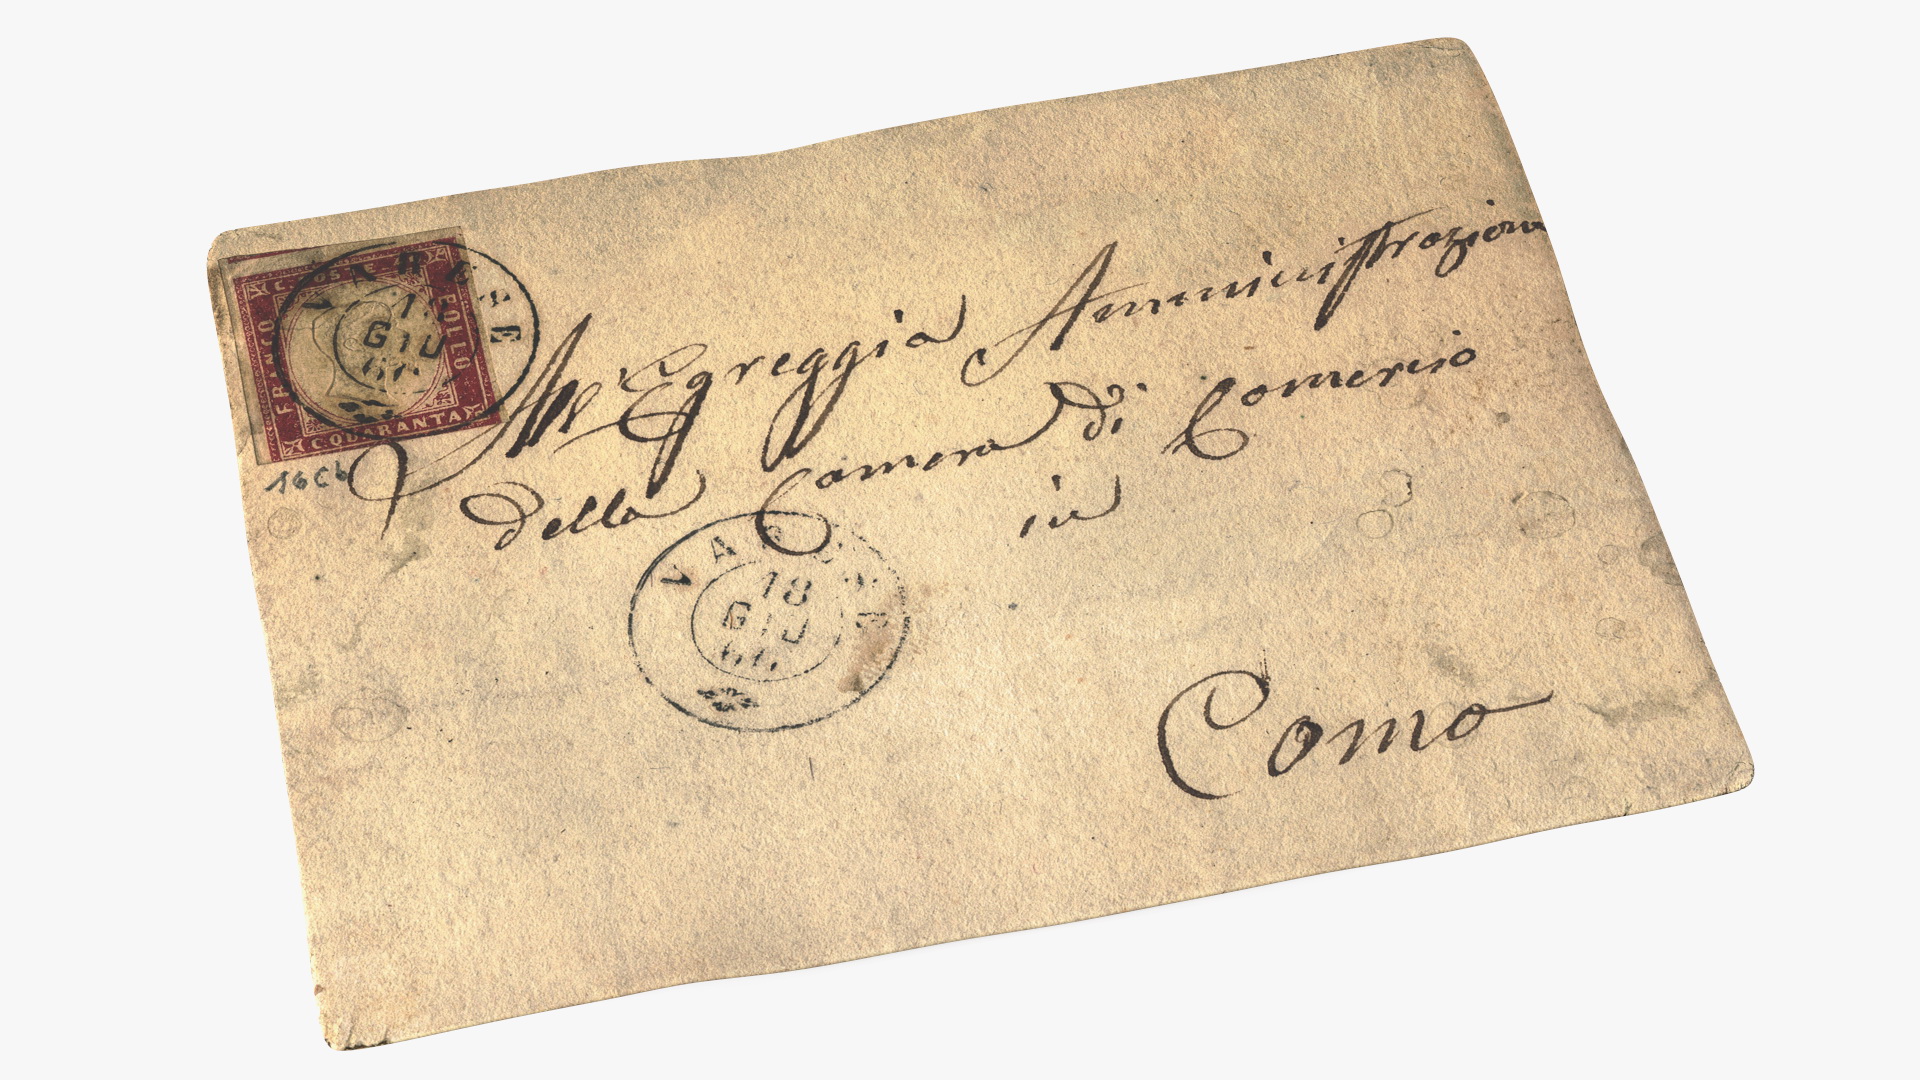 C. POSTE
FRANCO
BOLLO
C. QUARANTA
VARESE
18
GIU
16Cb
All'Egreggia Amministrazione
della Camera di Comercio
in
VARESE
18
GIU
Como